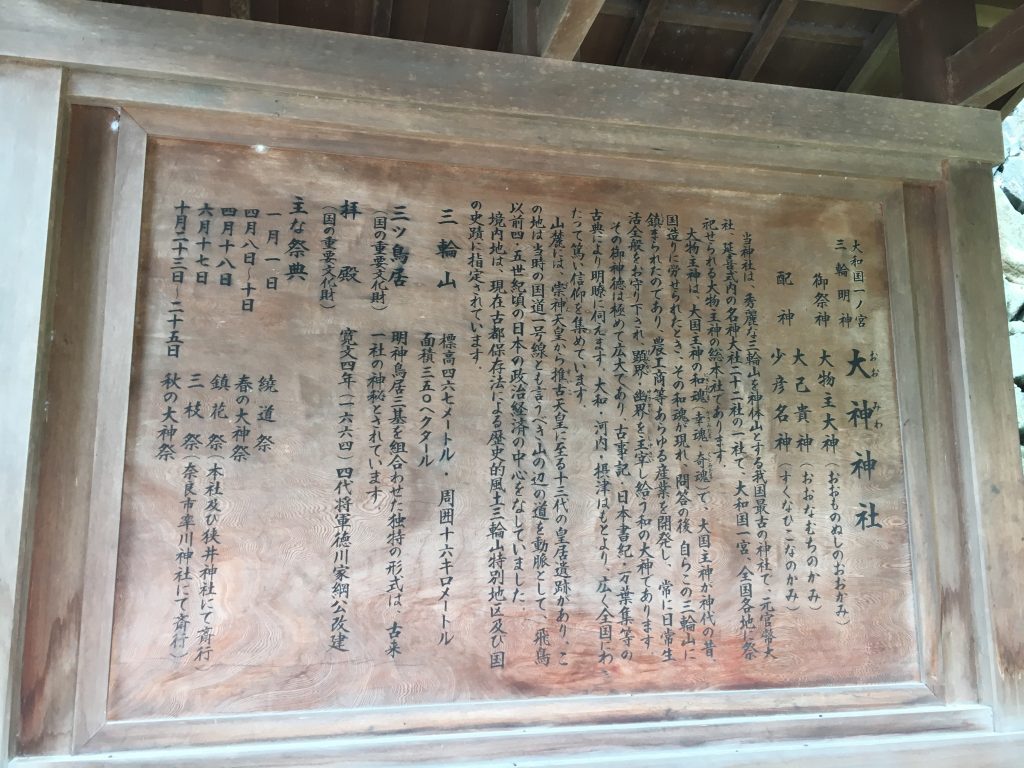 大和国一ノ宮
三輪明神
大神神社
おおみわ
御祭神 大物主大神(おおものぬしのおおかみ)
配神 大己貴神(おおなむちのかみ)
少彦名神(すくなひこなのかみ)
当神社は、秀麗な三輪山を神体とする我国最古の神社で、元官幣大
社、延喜式内の名神大社二十二社の一社で、大和国一宮、全国各地に祭
祀せられる大物主神の総本社であります。
大物主神は、大国主神の和魂、幸魂、奇魂で、大国主神が神代の昔
国造りに労せられたとき、その和魂が現れ、問答の後、自らこの三輪山に
鎮まられたのであり、農工商等あらゆる産業を開発し、常に日常生
活全般をお守り下され、顕界・幽界を主宰し給う和の大神であります
その御神徳は極めて広大であり、古事記・日本書紀・万葉集等の
古典により明瞭に伺えます。大和・河内・摂津はもとより、広く全国にわ
たって篤い信仰を集めています。
山麓には、崇神天皇から推古天皇に至る十三代の皇居遺跡があり、こ
の地は当時の国道一号線とも言うべき山の辺の道を動脈として、飛鳥
以前四・五世紀頃の日本の政治経済の中心をなしていました。
境内地は、現在古都保存法による歴史的風土三輪山特別地区及び国
の史蹟に指定されています。
三輪山 標高四六七メートル・周囲十六キロメートル
面積三五〇ヘクタール
三ツ鳥居 明神鳥居三基を組合わせた独特の形式は、古来
(国の重要文化財) 一社の神秘とされています。
拝殿 寛文四年(一六六四)四代将軍徳川家綱公改建
(国の重要文化財)
主な祭典
一月一日 繞道祭
四月八日〜十日 春の大神祭
四月十八日 鎮花祭(本社及び狭井神社にて斎行
六月十七日 三枝祭(奈良市率川神社にて斎行)
十月二十三日〜二十五日 秋の大神祭